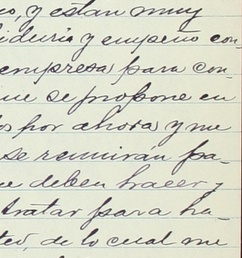 co, y estan muy
iduria y empeño con
empresa para con
ue se propone en
los por ahora y me
se reunirán pa
ue deben hacer y
tratar para ha
ted, de lo cual me